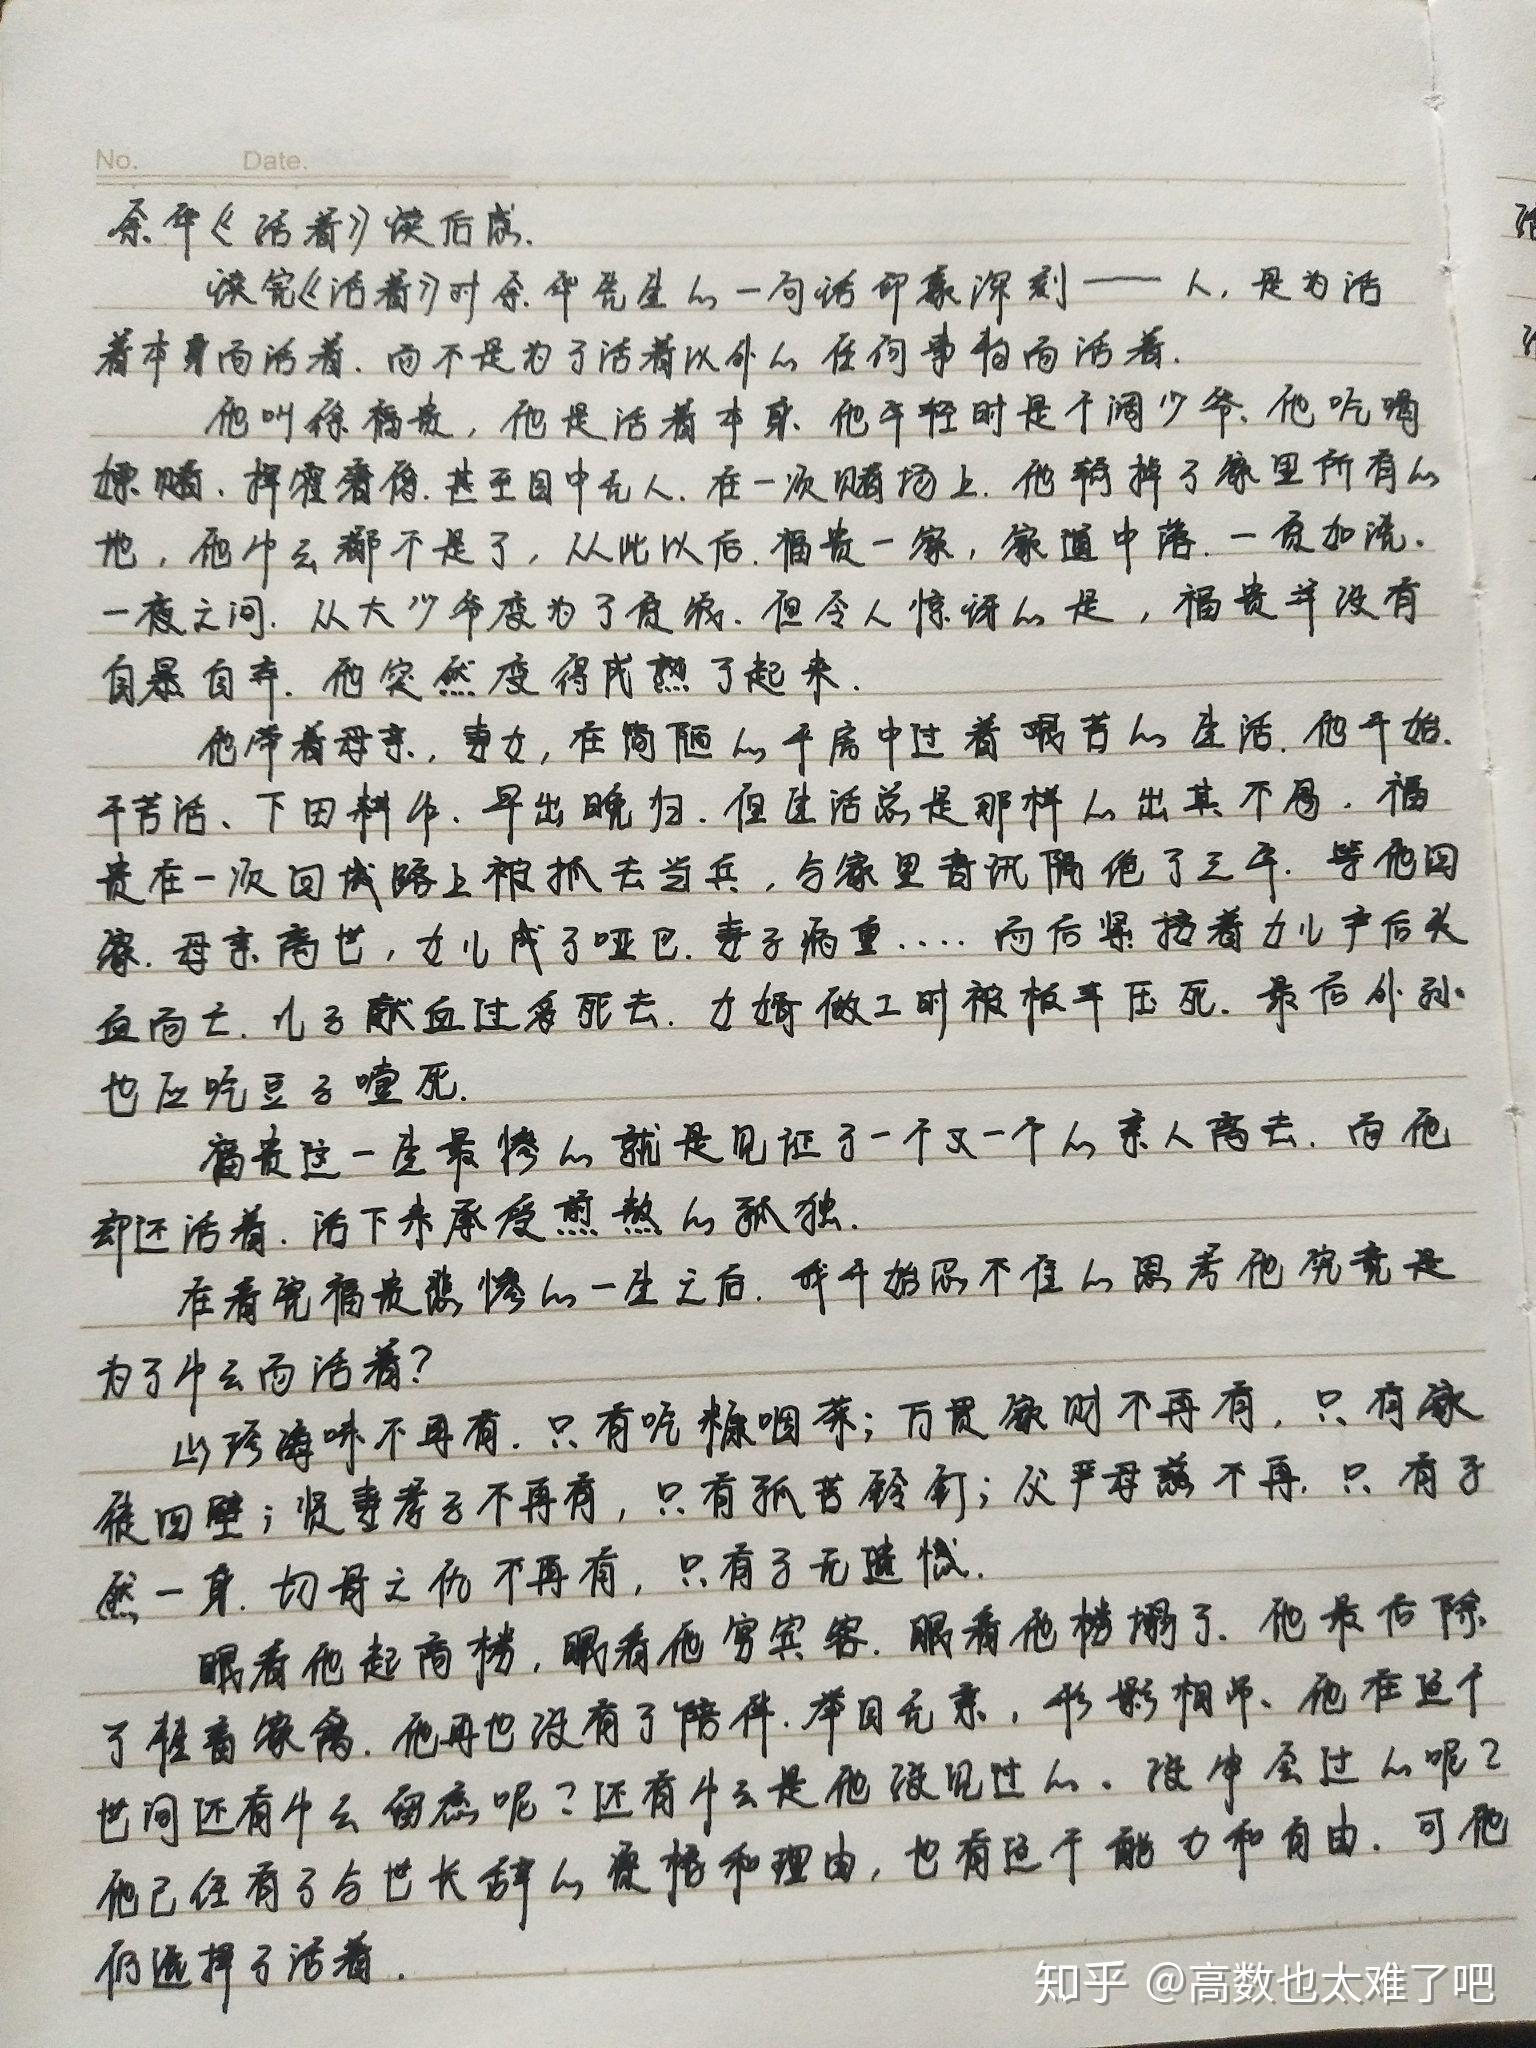 No. Date.
余华《活着》读后感.
读完《活着》对余华先生的一句话印象深刻——人,是为活
着本身而活着.而不是为了活着以外的任何事物而活着.
他叫徐福贵,他是活着本身.他年轻时是个阔少爷、他吃喝
嫖赌.挥霍奢侈.甚至目中无人.在一次赌场上.他输掉了家里所有的
地,他什么都不是了,从此以后.福贵一家,家道中落.一贫如洗.
一夜之间.从大少爷变为了贫农.但令人惊讶的是,福贵并没有
自暴自弃.他突然变得成熟了起来.
他带着母亲,妻女,在简陋的平房中过着艰苦的生活.他开始.
干苦活、下田耕作.早出晚归.但生活总是那样的出其不意.福
贵在一次回城路上被抓去当兵,与家里音讯隔绝了三年.等他回
家.母亲离世,女儿成了哑巴.妻子病重....而后紧接着女儿产后大
血而亡.儿子献血过多死去.女婿做工时被板车压死.最后外孙
也应吃豆子噎死.
福贵这一生最惨的就是见证了一个又一个的亲人离去.而他
却还活着.活下来承受煎熬的孤独.
在看完福贵悲惨的一生之后.我开始忍不住的思考他究竟是
为了什么而活着?
山珍海味不再有.只有吃糠咽菜;万贯家财不再有,只有家
徒四壁;贤妻孝子不再有,只有孤苦铃钉;父严母慈不再.只有孑
然一身.切骨之仇不再有,只有了无遗憾.
眼看他起高楼,眼看他宴宾客.眼看他楼塌了.他最后除
了牲畜家禽.他再也没有了陪伴.举目无亲,形影相吊、他在这个
世间还有什么留恋呢?还有什么是他没见过的.没体会过的呢?
他已经有了与世长辞的资格和理由,也有这个能力和自由.可他
仍选择了活着.
知乎 @高数也太难了吧